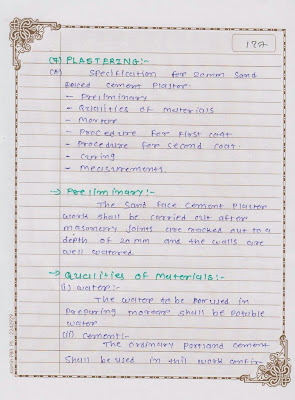 127
(7) PLASTERING:-
(A) Specification for 20mm Sand
faced cement Plaster.
- Preliminary
- Qualities of Materials
- Mortar
- Procedure for First coat
- Procedure for Second coat.
- Curing
- Measurements.
→ Preliminary:-
The Sand Face Cement Plaster
work shall be carried out after
masonry joints are racked out to a
depth of 20mm and the walls are
well watered.
→ Qualities of Materials:-
(i) water:-
The water to be used in
Preparing mortar shall be Potable
water
(ii) Cement:-
The ordinary Portland cement
Shall be used in this work confir-